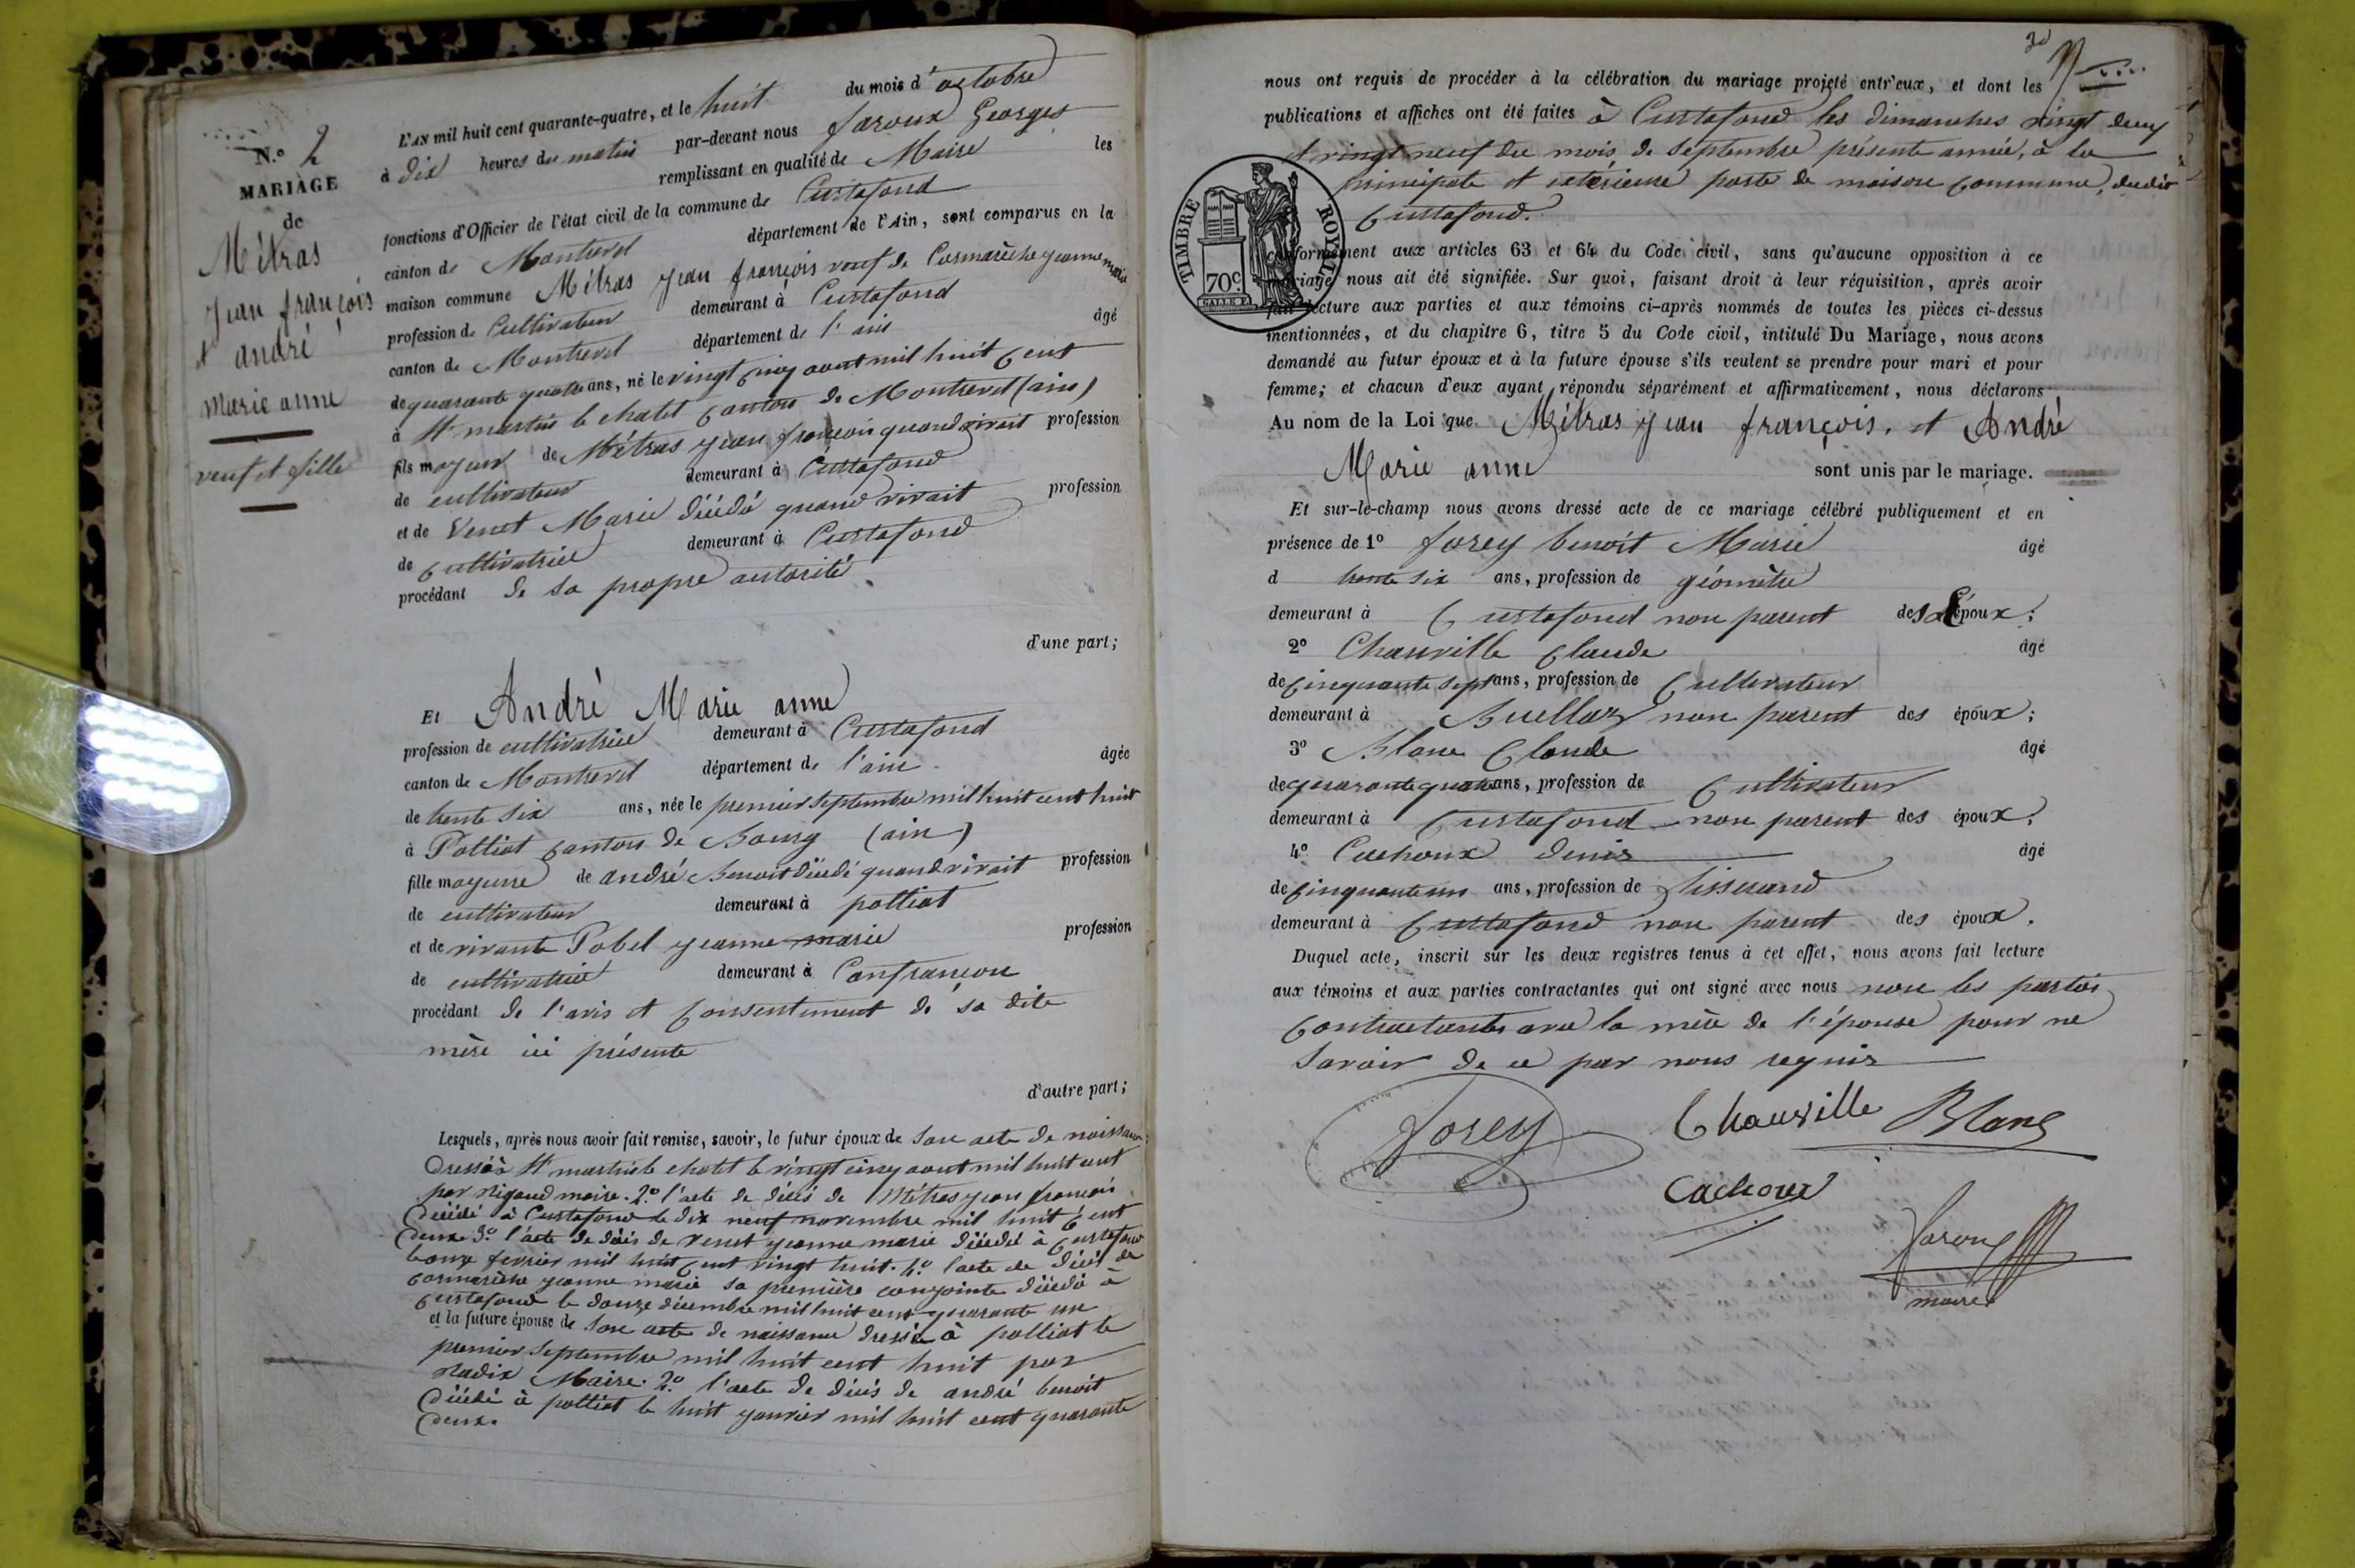 N.º 2
MARIAGE
de
Métras
Jean françois
et andré
marie anne
veuf et fille
L'AN mil huit cent quarante-quatre, et le huit du mois d'octobre
à dix heures du matin par-devant nous Jaroux Georges
remplissant en qualité de Maire les
fonctions d'Officier de l'état civil de la commune de Curtafond
canton de Montrevel département de l'Ain, sont comparus en la
maison commune Métras Jean françois veuf de Cormarèche jeanne marie
profession de Cultivateur demeurant à Curtafond
canton de Montrevel département de l'ain âgé
de quarante quatre ans, né le vingt cinq aout mil huit cent
à St martin le chatel canton de Montrevel (ain)
fils majeur de Métras jean françois quand vivait profession
de cultivateur demeurant à Curtafond
et de Venet Marie décédé quand vivait profession
de cultivatrice demeurant à Curtafond
procédant de sa propre autorité.
d'une part;
Et André Marie anne
profession de cultivatrice demeurant à Curtafond
canton de Montrevel département de l'ain âgée
de trente six ans, née le premier septembre mil huit cent huit
à Polliat canton de Bourg (ain)
fille majeure de andré Benoit décédé quand vivait profession
de cultivateur demeurant à polliat
et de vivante Pobel jeanne marie profession
de cultivatrice demeurant à Confrançon
procédant de l'avis et consentement de sa dite
mère ici présente
d'autre part;
Lesquels, après nous avoir fait remise, savoir, le futur époux de son acte de naissance
dressé à St martin le chatel le vingt cinq aout mil huit cent
par Rigaud maire. 2.º l'acte de décès de Métras jean françois
décédé à Curtafond le dix neuf novembre mil huit cent
deux 3.º l'acte de décès de venet jeanne marie décédé à Curtafond
le onze fevrier mil huit cent vingt huit. 4.º l'acte de décès de
cormarèche jeanne marie sa première conjointe décédé à
curtafond le douze décembre mil huit cent quarante un
et la future épouse de son acte de naissance dressée à polliat le
premier septembre mil huit cent huit par
Nadix Maire. 2.º l'acte de décès de andré benoit
décédé à polliat le huit janvier mil huit cent quarante
deux.
nous ont requis de procéder à la célébration du mariage projeté entr'eux, et dont les
publications et affiches ont été faites à Curtafond les dimanches vingt deux
et vingt neuf du mois de septembre présente année, à la
principale et extérieure porte de maison commune, dudit
Curtafond.
TIMBRE ROYAL
70c
SALLE
conformément aux articles 63 et 64 du Code civil, sans qu'aucune opposition à ce
mariage nous ait été signifiée. Sur quoi, faisant droit à leur réquisition, après avoir
fait lecture aux parties et aux témoins ci-après nommés de toutes les pièces ci-dessus
mentionnées, et du chapitre 6, titre 5 du Code civil, intitulé Du Mariage, nous avons
demandé au futur époux et à la future épouse s'ils veulent se prendre pour mari et pour
femme; et chacun d'eux ayant répondu séparément et affirmativement, nous déclarons
Au nom de la Loi que Métras jean françois. et André
Marie anne sont unis par le mariage.
Et sur-le-champ nous avons dressé acte de ce mariage célébré publiquement et en
présence de 1º Jorey benoit Marie âgé
d trente six ans, profession de géomètre
demeurant à Curtafond non parent des époux;
2º Chauville Claude âgé
de cinquante sept ans, profession de Cultivateur
demeurant à Buellaz non parent des époux;
3º Blanc Claude âgé
de quarante quatre ans, profession de Cultivateur
demeurant à Curtafond non parent des époux;
4º Cachoux denis âgé
de cinquante un ans, profession de tisserand
demeurant à Curtafond non parent des époux.
Duquel acte, inscrit sur les deux registres tenus à cet effet, nous avons fait lecture
aux témoins et aux parties contractantes qui ont signé avec nous non les parties
contractantes avec la mère de l'épouse pour ne
savoir de ce par nous requis
Jorey Chauville Blanc
Cachoux
Jaroux
maire